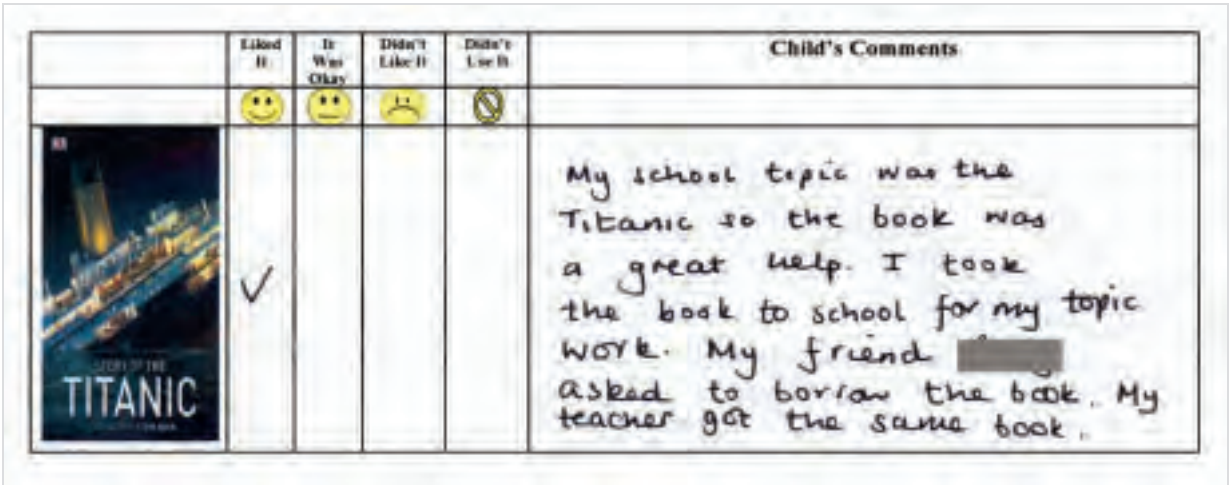 Liked It
It Was Okay
Didn't Like It
Didn't Use It
Child's Comments
STORY OF THE
TITANIC
My school topic was the
Titanic so the book was
a great help. I took
the book to school for my topic
work. My friend
asked to borrow the book. My
teacher got the same book.